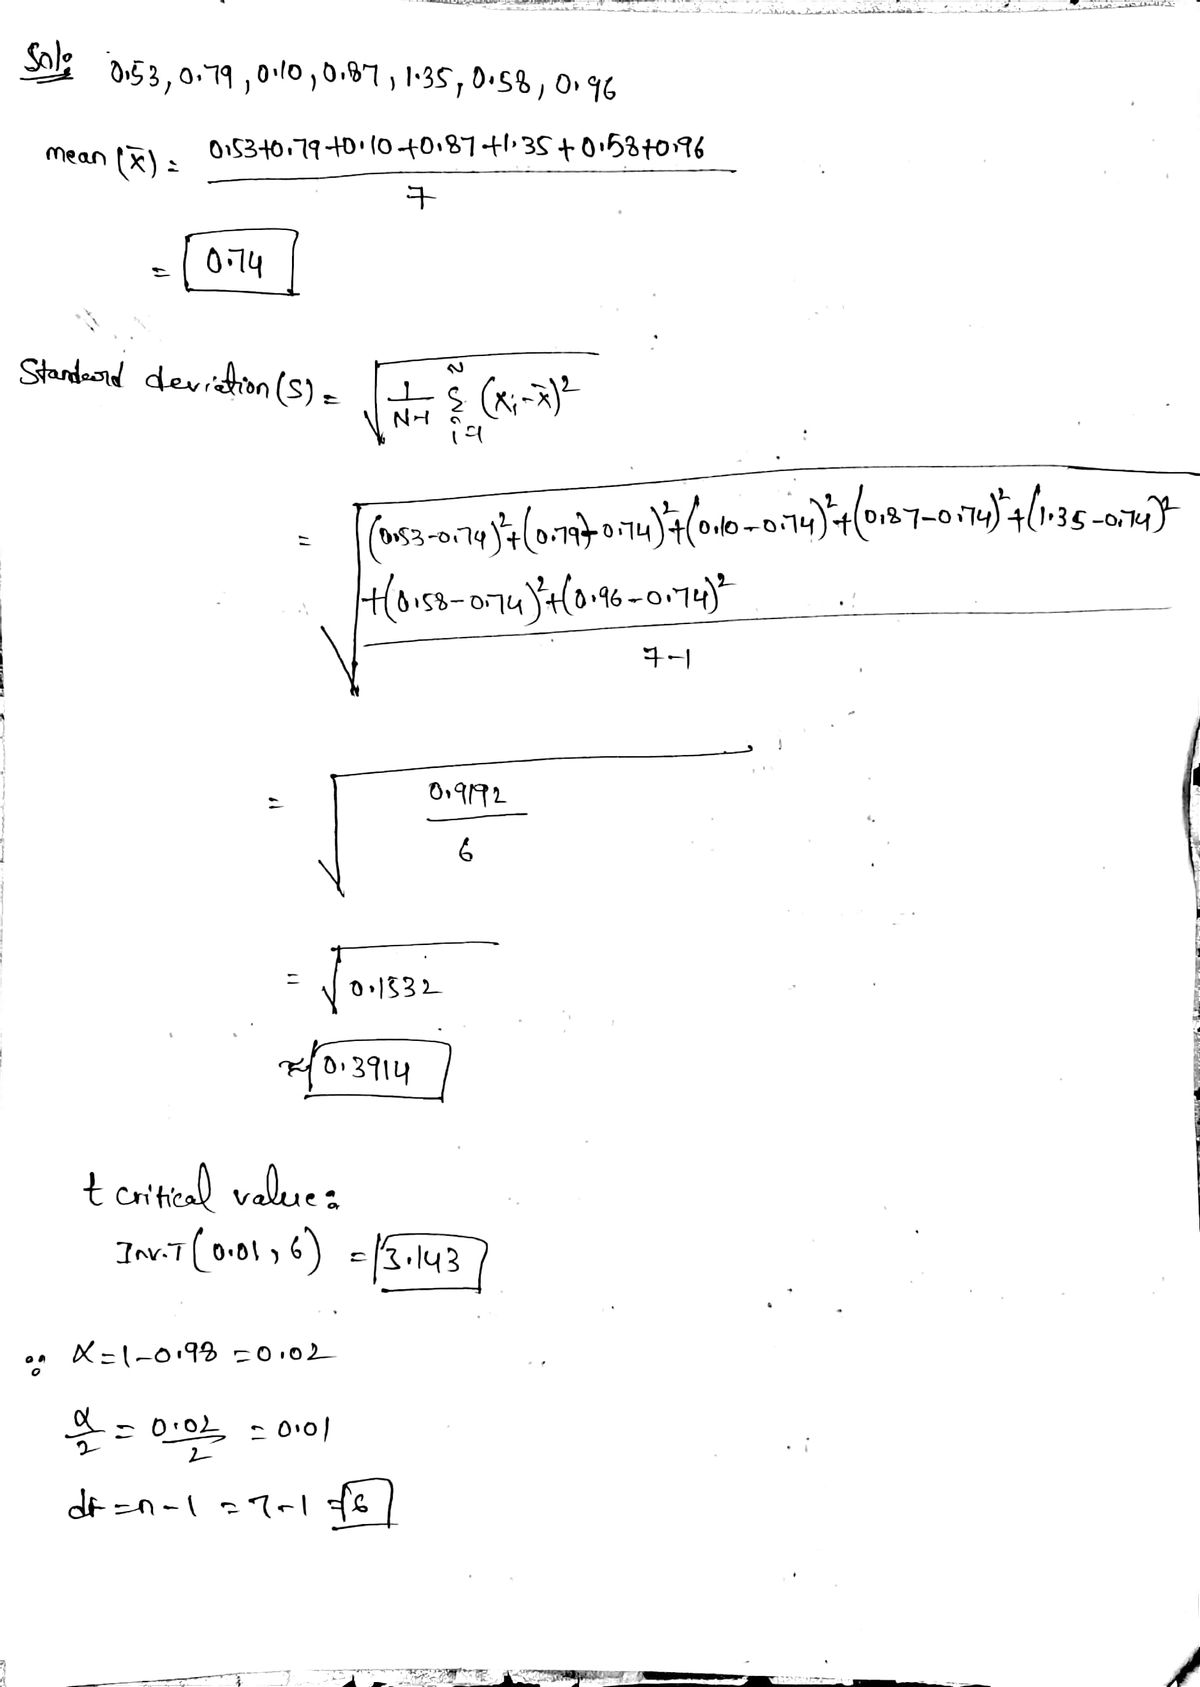 Sol:
0.53, 0.79, 0.10, 0.87, 1.35, 0.58, 0.96
mean (x̄) = 0.53+0.79+0.10+0.87+1.35+0.58+0.96
7
= 0.74
Standard deviation (S) = √ 1/N-1 N Σ i=1 (xi-x̄)²
= √ (0.53-0.74)²+(0.79-0.74)²+(0.10-0.74)²+(0.87-0.74)²+(1.35-0.74)²
+(0.58-0.74)²+(0.96-0.74)²
7-1
= √ 0.9192
6
= √0.1532
≈ 0.3914
t critical value:
Inv.T(0.01, 6) = 3.143
∵ α=1-0.98=0.02
α/2 = 0.02/2 = 0.01
df = n-1 = 7-1 = 6